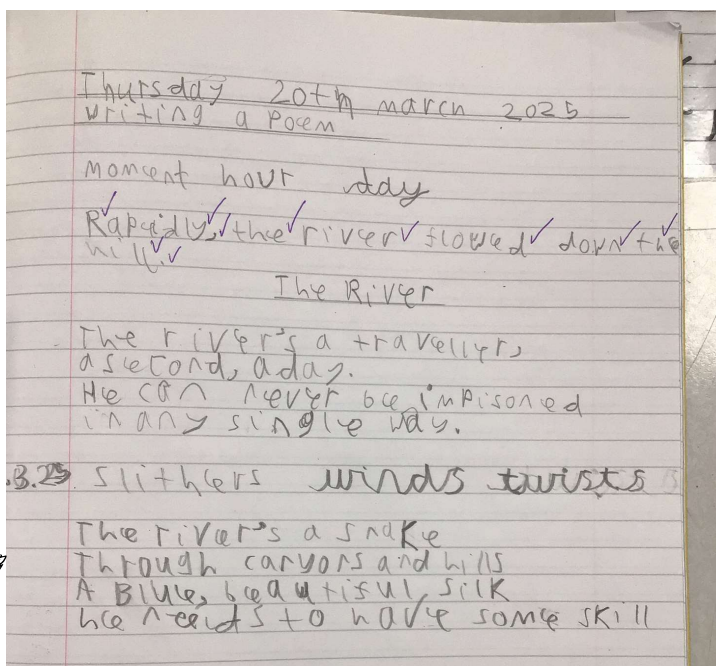 Thursday 20th march 2025
writing a poem
moment hour day
Rapidly, the river flowed down the
hill.
The River
The river's a traveller,
a second, a day.
He can never be impisoned
in any single way.
.3.25 slithers winds twists
The river's a snake
Through canyons and hills
A Blue, beautiful, silk
he needs to have some skill